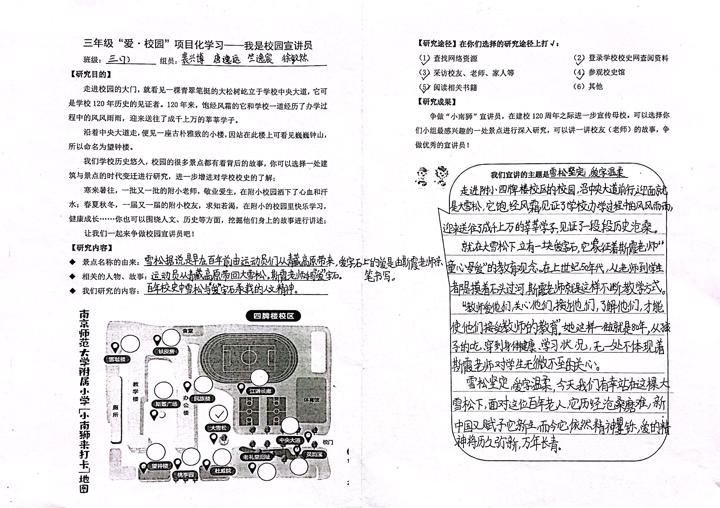 三年级“爱·校园”项目化学习——我是校园宣讲员
班级：三(7) 组员：
【研究目的】
走进校园的大门，就看见一棵青翠笔挺的大松树屹立于学校中央大道，它可
是学校120年历史的见证者。120年来，饱经风霜的它和学校一道经历了办学过
程中的风风雨雨，迎来送往了成千上万的莘莘学子。
沿着中央大道走，便见一座古朴雅致的小楼，因站在此楼上可看见巍巍钟山，
所以命名为望钟楼。
我们学校历史悠久，校园的很多景点都有着背后的故事，你可以选择一处建
筑与景点的时代变迁进行研究，进一步增进对学校校史的了解；
寒来暑往，一批又一批的附小老师，敬业爱生，在附小校园洒下了心血和汗
水；春夏秋冬，一届又一届的附小校友，求知若渴，在附小的校园里快乐学习，
健康成长……你也可以围绕人文、历史等方面，挖掘他们身上的故事进行讲述；
让我们一起来争做校园宣讲员吧！
【研究内容】
◆ 景点名称的由来：雪松据说是早在百年前由运动员们从青藏高原带来，爱字石上的爱是由斯霞老师亲
◆ 相关的人物、故事：运动员从青藏高原带回大雪松，斯霞老师与爱字石。 笔书写。
◆ 我们研究的内容：百年校史中雪松与“爱”字石承载的人文精神。
南京师范大学附属小学【小南狮来打卡】地图
四牌楼校区
食堂
教学楼
办公楼
厕所
斯霞广场
民族楼
江湖长廊
体育馆
大雪松
中央大道
校门
望钟楼
杜威院
老礼堂旧址
【研究途径】在你们选择的研究途径上打√：
(1) 查找网络资源 (2) 登录学校校史网查阅资料
(3) 采访校友、老师、家人等 (4) 参观校史馆
(5) 阅读相关书籍 (6) 其他
【研究成果】
争做“小南狮”宣讲员，在建校120周年之际进一步宣传母校。可以选择你
们小组最感兴趣的一处景点进行深入研究，可以讲一讲校友（老师）的故事，争
做优秀的宣讲员！
我们宣讲的主题是雪松坚定，爱字温柔
走进附小四牌楼校区的校园，沿中央大道前行，迎面就
是大雪松，它饱经风霜，见证了学校办学过程中的风风雨雨，
迎来送往了成千上万的莘莘学子，见证了一段段历史沧桑。
就在大雪松下，立有一块爱字石，它象征着斯霞老师“
童心母爱”的教育观念。在上世纪50年代，从老师到学生
都摸着石头过河，斯霞老师就是这样不断教学方式。
“教师爱他们，关心他们，接近他们，了解他们，才能
使他们接受教师的教育”她这样一做就是80年，从孩
子的吃，穿到身体健康、学习状况，无一处不体现着
斯霞老师对学生无微不至的关心。
雪松坚定，爱字温柔，今天我们有幸站在这棵大
雪松下，面对这位百年老人，它历经沧桑磨难，新
中国又赋予它新生，而今它依然精神矍铄，爱的精
神将历久弥新，万年长青。